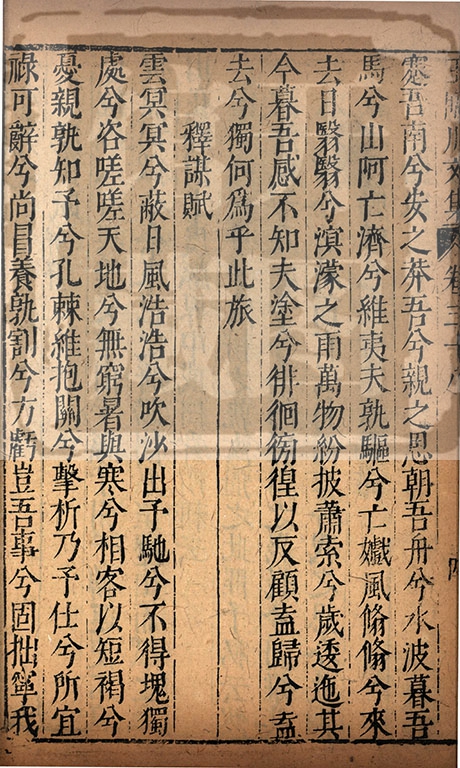 蹇吾南兮安之莽吾兮親之思朝吾舟兮水波暮吾
馬兮山阿亡濟兮維夷夫孰驅兮亡巇風翛翛兮來
去日翳翳兮溟濛之雨萬物紛披蕭索兮歲逶迤其
今暮吾感不知夫塗兮徘徊徬徨以反顧盍歸兮盍
去兮獨何爲乎此旅
釋謀賦
雲冥冥兮蔽日風浩浩兮吹沙出予馳兮不得塊獨
處兮咨嗟嗟天地兮無窮暑與寒兮相客以短褐兮
憂親孰知予兮孔棘維抱關兮擊柝乃予仕兮所宜
祿可辭兮尚冒養孰割兮方虧豈吾事兮固拙寧我